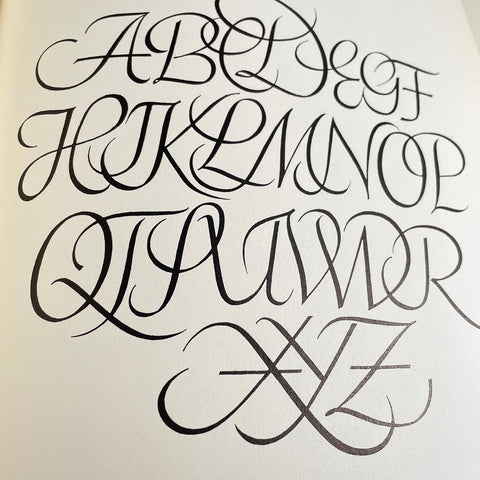 ABCDEGF
HIKLMNOP
QTAUWR
XYZ